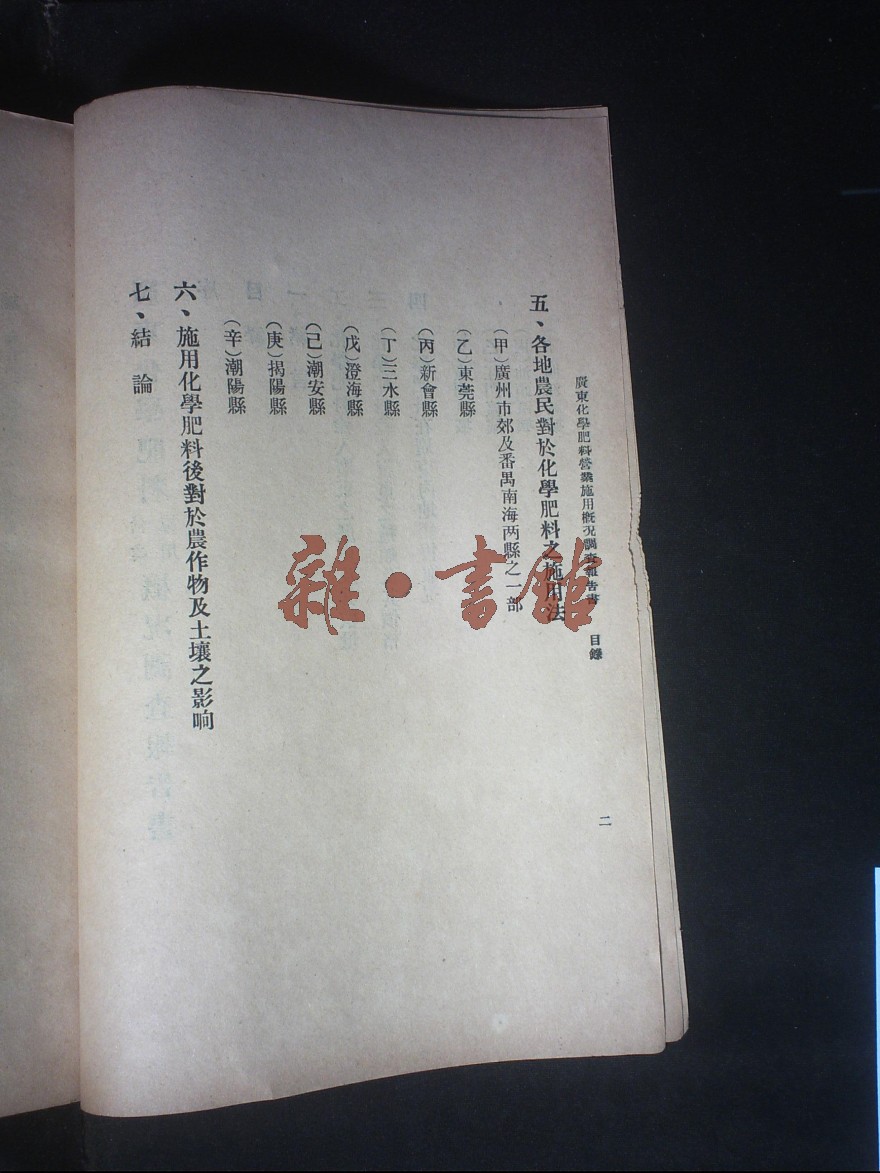 廣東化學肥料營業施用概況調查報告書　目錄
二
五、各地農民對於化學肥料之施用法
（甲）廣州市郊及番禺南海两縣之一部
（乙）東莞縣
（丙）新會縣
（丁）三水縣
（戊）澄海縣
（己）潮安縣
（庚）揭陽縣
（辛）潮陽縣
六、施用化學肥料後對於農作物及土壤之影响
七、結論
雜·書館